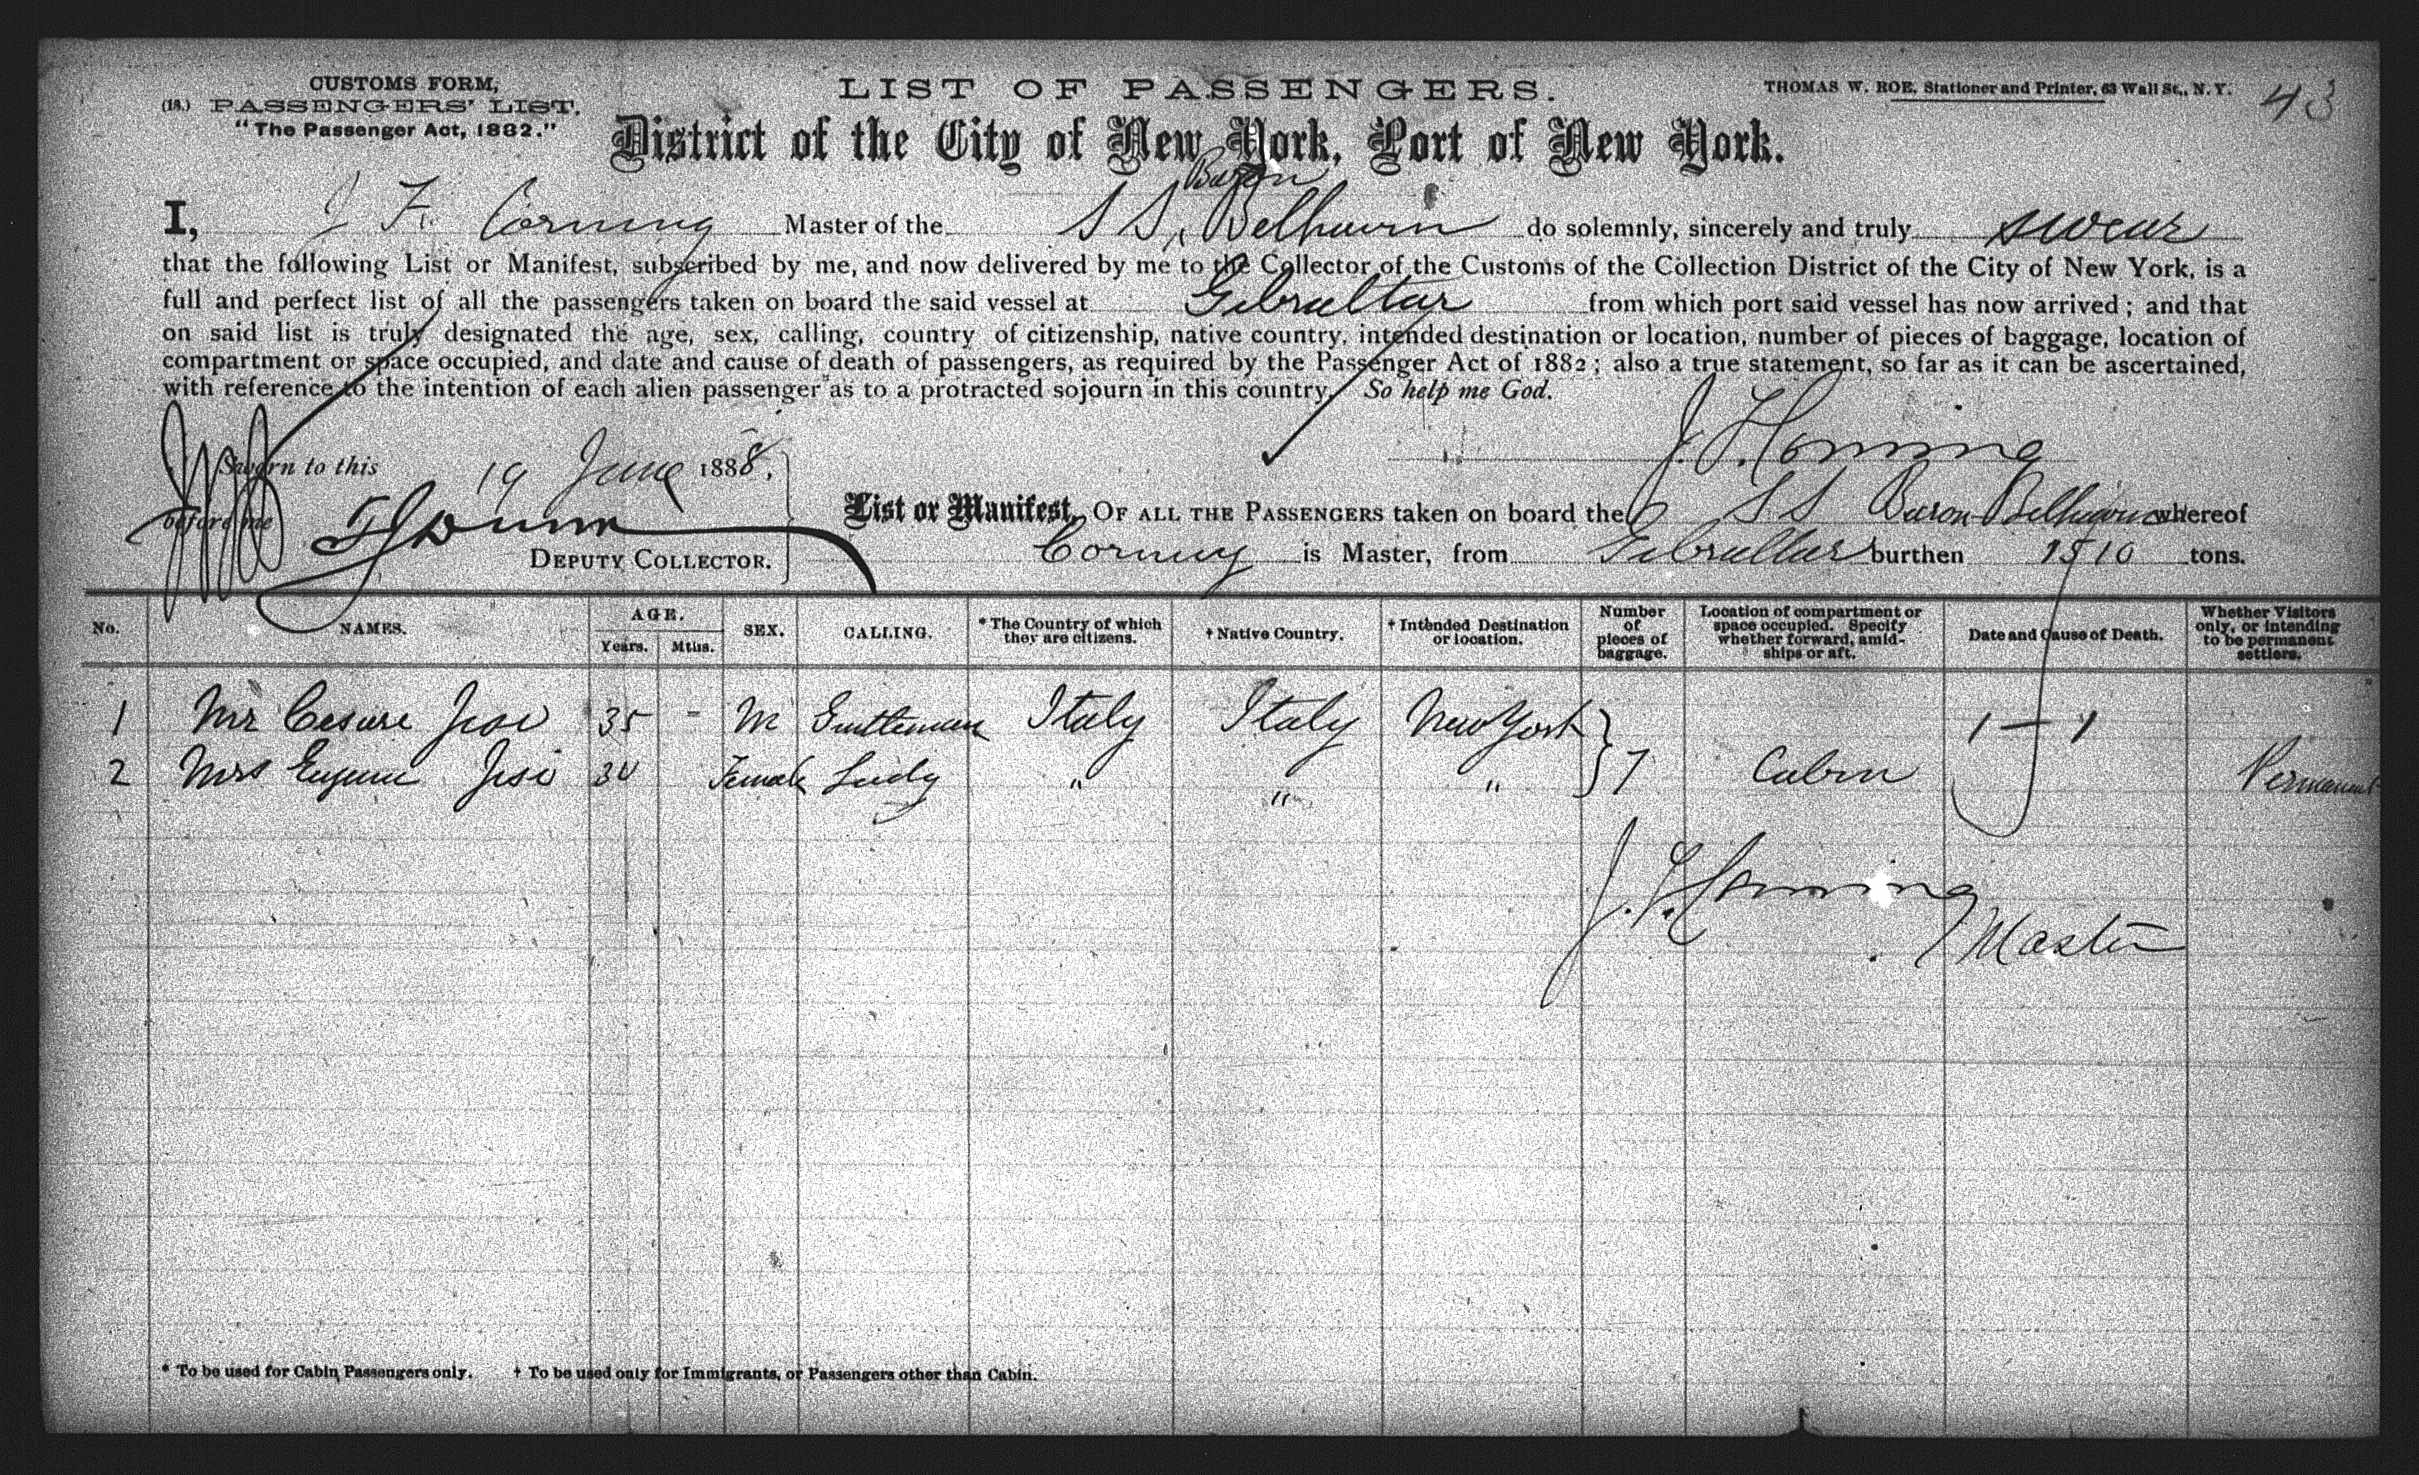 CUSTOMS FORM,
(18.) PASSENGERS' LIST.
"The Passenger Act, 1882."
LIST OF PASSENGERS.
THOMAS W. ROE, Stationer and Printer, 63 Wall St., N. Y.
43
District of the City of New York, Port of New York.
Baron
I, J F. Corning Master of the S S, Belhaven do solemnly, sincerely and truly swear
that the following List or Manifest, subscribed by me, and now delivered by me to the Collector of the Customs of the Collection District of the City of New York, is a
full and perfect list of all the passengers taken on board the said vessel at Gibraltar from which port said vessel has now arrived; and that
on said list is truly designated the age, sex, calling, country of citizenship, native country, intended destination or location, number of pieces of baggage, location of
compartment or space occupied, and date and cause of death of passengers, as required by the Passenger Act of 1882; also a true statement, so far as it can be ascertained,
with reference to the intention of each alien passenger as to a protracted sojourn in this country. So help me God.
J. F. Corning
Sworn to this 19 June 1888,
before me
DEPUTY COLLECTOR.
List or Manifest, OF ALL THE PASSENGERS taken on board the S S Baron Belhaven whereof
Corning is Master, from Gibraltar burthen 1510 tons.
No. NAMES. AGE. Years. Mths. SEX. CALLING. * The Country of which they are citizens. † Native Country. † Intended Destination or location. Number of pieces of baggage. Location of compartment or space occupied. Specify whether forward, amidships or aft. Date and Cause of Death. Whether Visitors only, or intending to be permanent settlers.
1 Mr Cesare Jesi 35 - M Gentleman Italy Italy New York
2 Mrs Eugenie Jesi 30 Female Lady " " " 7 Cabin Permanent
J. F. Corning
Master
* To be used for Cabin Passengers only. † To be used only for Immigrants, or Passengers other than Cabin.